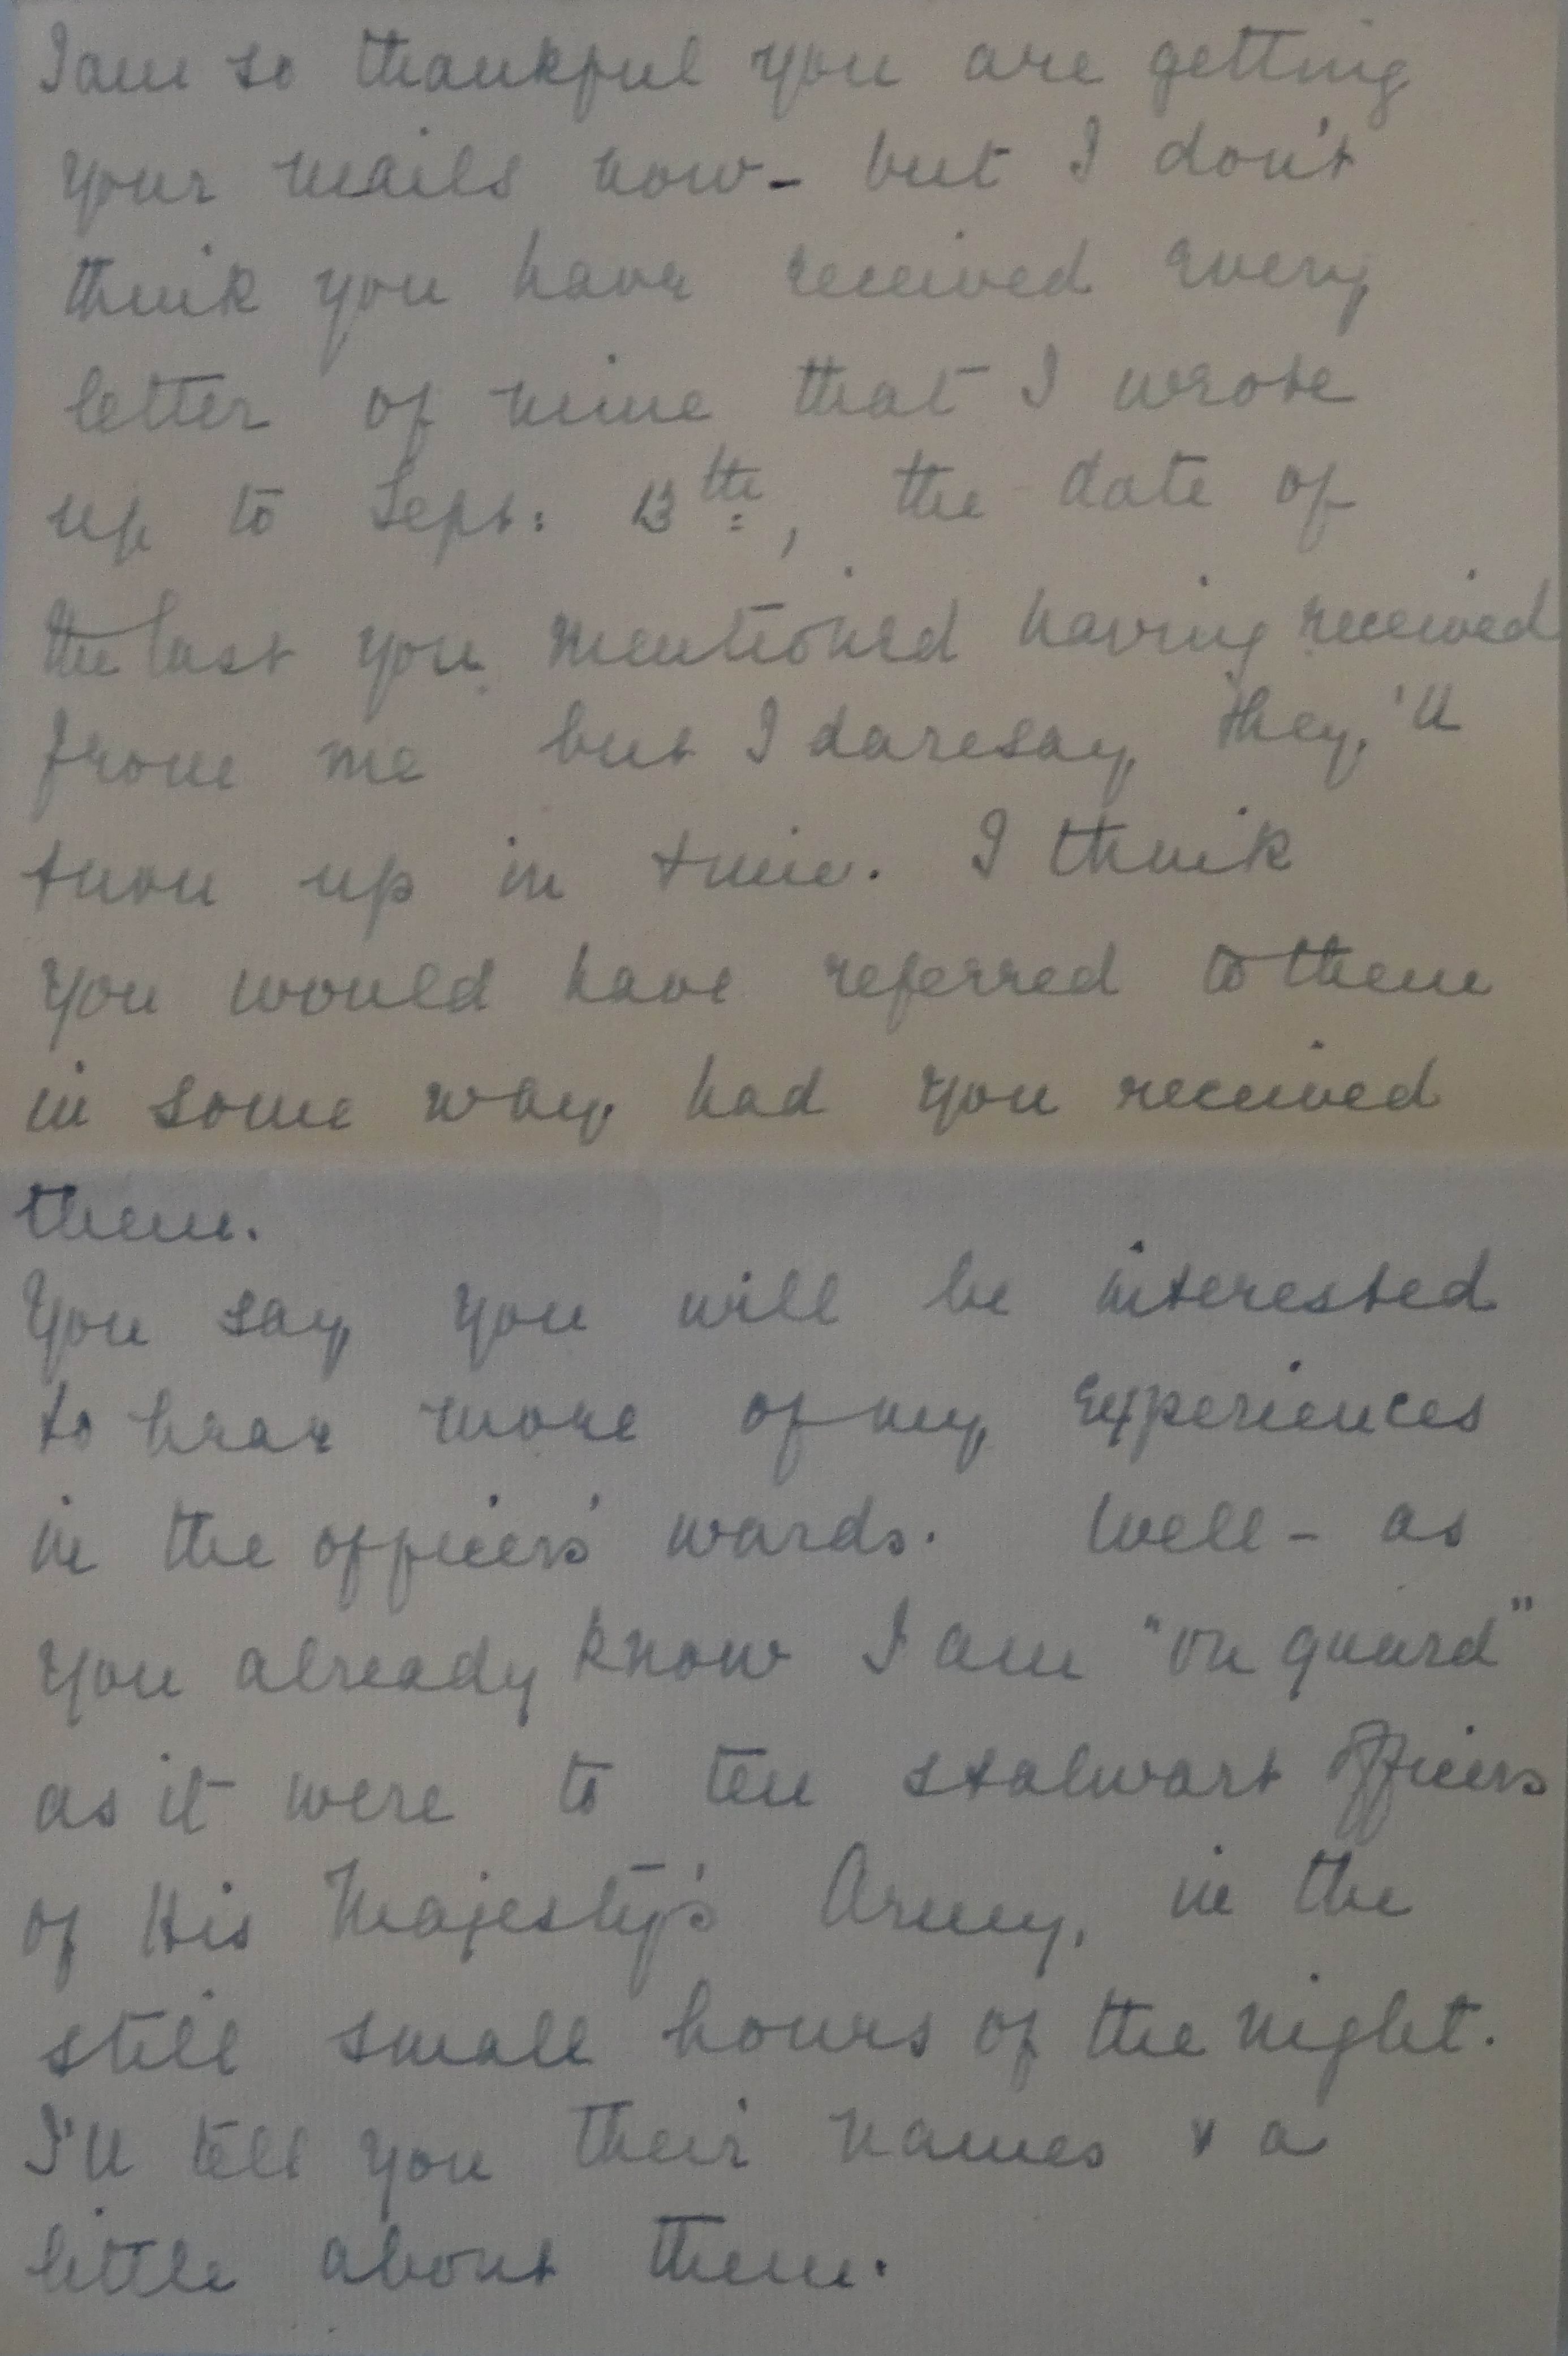 I am so thankful you are getting
your mails now - but I don't
think you have received every
letter of mine that I wrote
up to Sept: 13th, the date of
the last you mentioned having received
from me but I daresay they'll
turn up in time. I think
you would have referred to them
in some way had you received
them.
You say you will be interested
to hear more of my experiences
in the officers' wards. Well - as
you already know I am "on guard"
as it were to ten stalwart officers
of His Majesty's Army, in the
still small hours of the night.
I'll tell you their names & a
little about them.